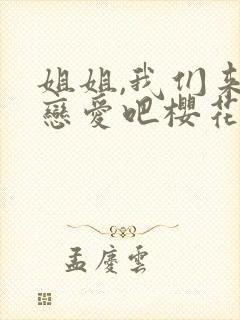 姐姐,我们来
戀愛吧櫻花
孟慶雲